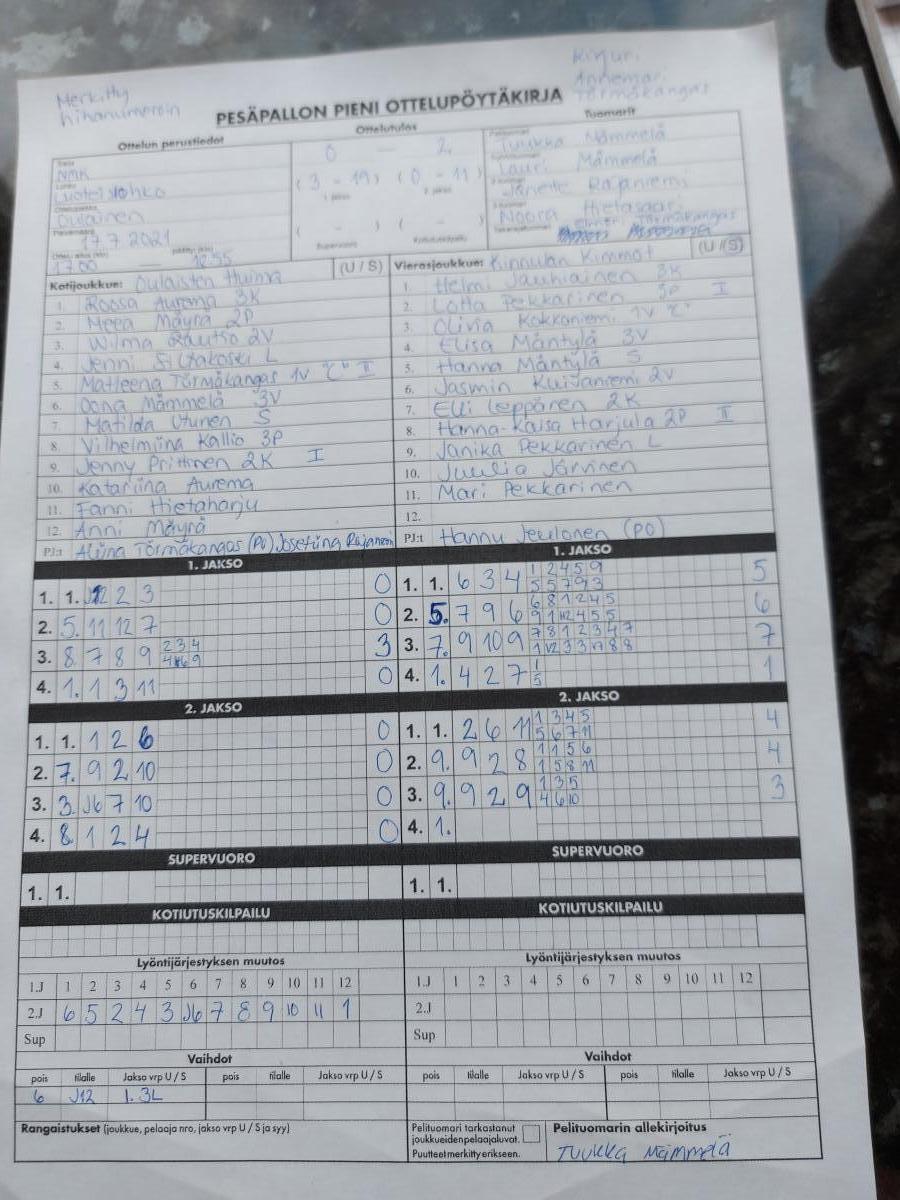 Merkitty
hihanumeroin
Kirjuri
Annemari
Törmäkangas
PESÄPALLON PIENI OTTELUPÖYTÄKIRJA
Ottelun perustiedot
Ottelutulos
Tuomarit
NMK
Luoteislohko
Oulainen
17.7 2021
17.00
0 — 2
(3 - 19) (0 - 11)
( - ) ( - )
Supervuoro
Tuukka Mämmelä
Lauri Mämmelä
Janette Rajaniemi
Noora Hietasaari
Törmäkangas
Kotijoukkue: Oulaisten Huima (U / S)
1. Roosa Aurema 3K
2. Meea Mäyrä 2P
3. Wilma Rautio 2V
4. Jenni L
5. Matleena Törmäkangas 1V "C" II
6. Oona Mämmelä 3V
7. Matilda S
8. Vilhelmiina Kallio 3P
9. Jenny Prittinen 2K I
10. Katariina Aurema
11. Fanni Hietaharju
12. Anni Mäyrä
PJ:t Aliina Törmäkangas (PO), Josefiina Rajaniemi
Vierasjoukkue: Kinnulan Kimmat (U / S)
1. Helmi Jauhiainen 3K
2. Lotta Pekkarinen 3P I
3. Olivia Kokkoniemi 1V "C"
4. Elisa Mäntylä 3V
5. Hanna Mäntylä S
6. Jasmin Kuivaniemi 2V
7. Elli Leppänen 2K
8. Hanna-Kaisa Harjula 2P II
9. Janika Pekkarinen L
10. Juulia Järvinen
11. Mari Pekkarinen
12.
PJ:t Hannu Jeulonen (PO)
1. JAKSO
1. 1. 2 3 0
2. 5. 11 12 7 0
3. 8. 7 8 9 2 3 4 3
4. 1. 1 3 11 0
1. JAKSO
1. 1. 6 3 4 1 2 4 5 9 5
5 5 7 9 3
2. 5. 7 9 6 6 8 1 2 4 5 6
9 1 12 4 5 5
3. 7. 9 10 9 7 8 1 2 3 4 7 7
4. 1. 4 2 7 1 1
5
2. JAKSO
1. 1. 1 2 6 0
2. 7. 9 2 10 0
3. 3. J6 7 10 0
4. 8. 1 2 4 0
2. JAKSO
1. 1. 2 6 11 1 3 4 5 4
5 6 7 11
2. 9. 9 2 8 1 1 5 6 4
1 5 8 11
3. 9. 9 2 9 1 3 5 3
4 6 10
4. 1.
SUPERVUORO
1. 1.
SUPERVUORO
1. 1.
KOTIUTUSKILPAILU
KOTIUTUSKILPAILU
Lyöntijärjestyksen muutos
1.J 1 2 3 4 5 6 7 8 9 10 11 12
2.J 6 5 2 4 3 J6 7 8 9 10 11 1
Sup
Lyöntijärjestyksen muutos
1.J 1 2 3 4 5 6 7 8 9 10 11 12
2.J
Sup
Vaihdot
pois tilalle Jakso vrp U / S pois tilalle Jakso vrp U / S
6 J12 1. 3L
Vaihdot
pois tilalle Jakso vrp U / S pois tilalle Jakso vrp U / S
Rangaistukset (joukkue, pelaaja nro, jakso vrp U / S ja syy)
Pelituomari tarkastanut
joukkueiden pelaajaluvat.
Puutteet merkitty erikseen.
Pelituomarin allekirjoitus
Tuukka Mämmelä